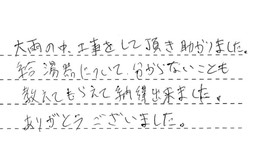 大雨の中、工事をして頂き助かりました。
給湯器について分からないことも
教えてもらえて納得出来ました。
ありがとうございました。